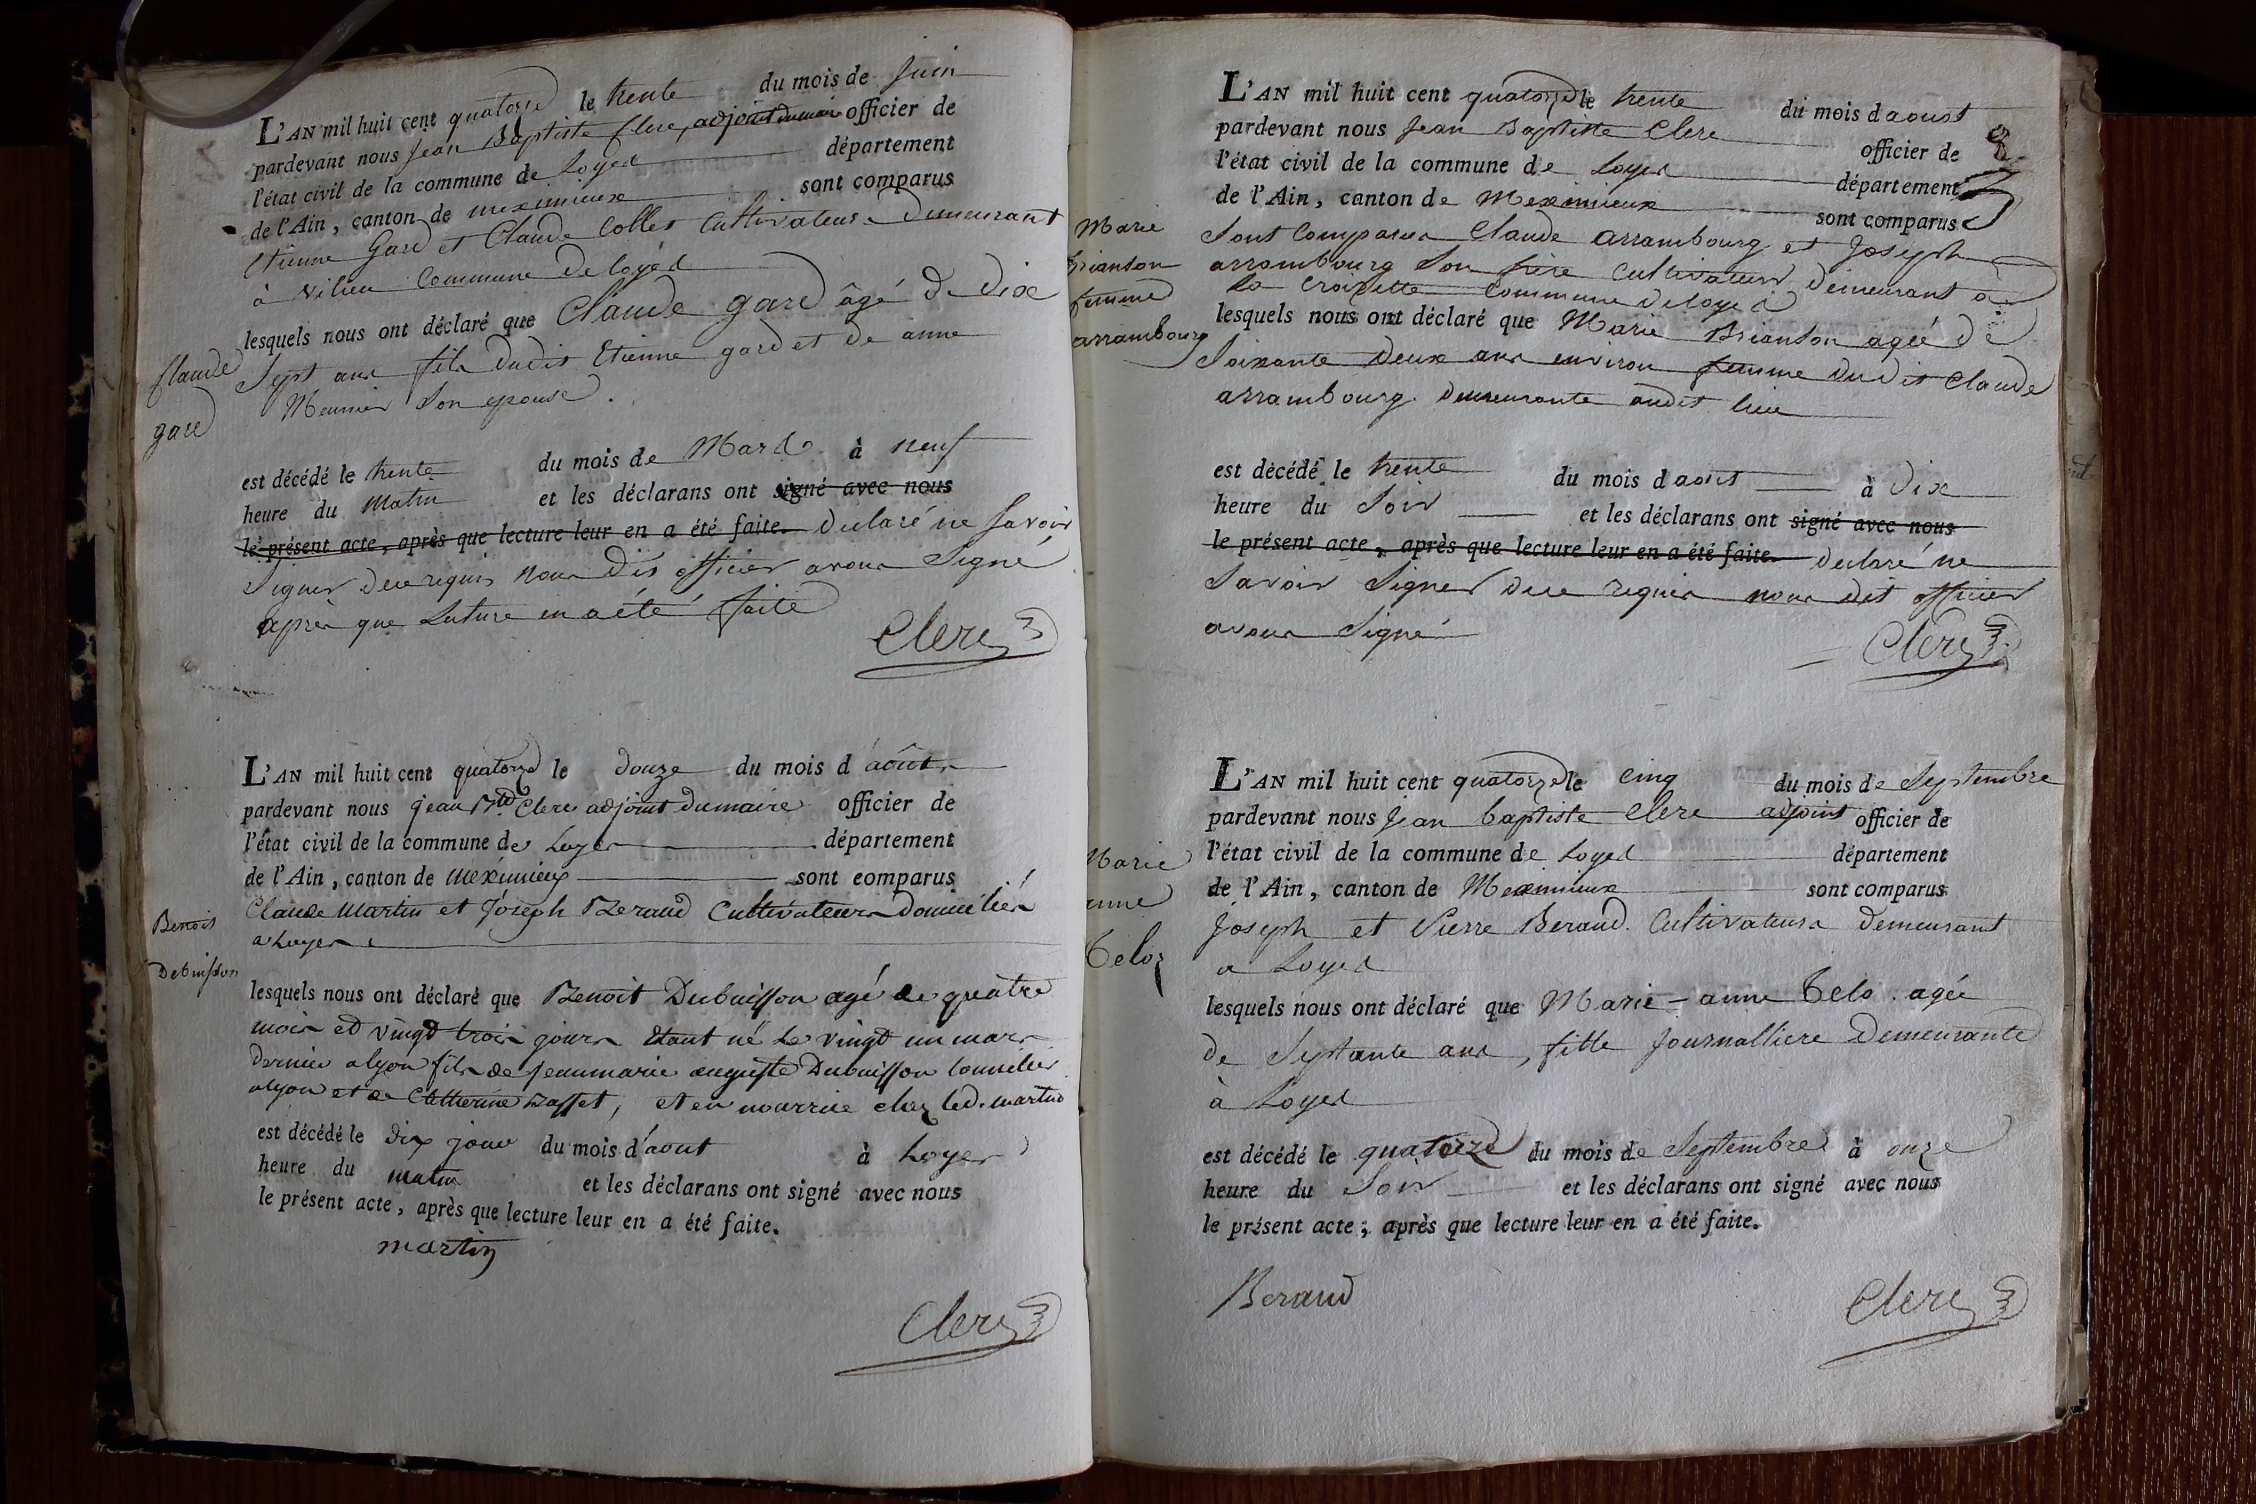 L'AN mil huit cent quatorze le trente du mois de Juin
pardevant nous Jean Baptiste Clerc, adjoint du maire officier de
l'état civil de la commune de Loyes département
de l'Ain, canton de meximieux sont comparus
Etienne Gard et Claude Collet Cultivateurs Demeurant
à Vilieu Commune de loyes
lesquels nous ont déclaré que Claude gard âgé de Dix
Claude
gard
Sept ans fils dudit Etienne gard et de anne
Meunier Son epouse.
est décédé le trente du mois de Mars à neuf
heure du Matin et les déclarans ont signé avec nous
le présent acte, après que lecture leur en a été faite. Declaré ne Savoir
Signer de ce requis nous dit officier avons Signé
après que Lecture en a été faite
Clerc
L'AN mil huit cent quatorze le douze du mois d'août
pardevant nous jean Bte Clerc adjoint du maire officier de
l'état civil de la commune de Loyes département
de l'Ain, canton de meximieux sont comparus
Claude Martin et Joseph Beraud Cultivateurs Domiciliés
a Loyes
Benoit
Debuisson
lesquels nous ont déclaré que Benoit Dubuisson agé de quatre
mois et vingt trois jours Etant né Le vingt un mars
dernier a lyon fils de jean marie auguste Dubuisson tonnelier
a lyon et de Catherine Basset, et en nourrice chez led. martin
est décédé le dix jour du mois d'aout à Loyes
heure du matin et les déclarans ont signé avec nous
le présent acte, après que lecture leur en a été faite.
martin
Clerc
L'AN mil huit cent quatorze le trente du mois d'aoust
pardevant nous Jean Baptiste Clerc officier de
l'état civil de la commune de Loyes département
de l'Ain, canton de Meximieux sont comparus
Marie
Brianson
femme
arrambourg
Sont Comparus Claude arrambourg et Joseph
arrambourg Son frère Cultivateurs demeurant à
la Croisette Commune de loyes
lesquels nous ont déclaré que Marie Brianson agée de
Soixante Deux ans environ femme du dit Claude
arrambourg. Demeurante audit lieu
est décédé le trente du mois d'aout à Dix
heure du Soir et les déclarans ont signé avec nous
le présent acte, après que lecture leur en a été faite. Declaré ne
Savoir Signer de ce requis nous dit officier
avons Signé
Clerc
L'AN mil huit cent quatorze le cinq du mois de Septembre
pardevant nous Jean baptiste Clerc adjoint officier de
l'état civil de la commune de Loyes département
de l'Ain, canton de Meximieux sont comparus
Marie
anne
Telos
Joseph et Pierre Beraud. Cultivateurs Demeurant
a Loyes
lesquels nous ont déclaré que Marie-anne Telo. agée
de Septante ans, fille Journalliere Demeurante
à Loyes
est décédé le quatorze du mois de Septembre à onze
heure du Soir et les déclarans ont signé avec nous
le présent acte, après que lecture leur en a été faite.
Beraud
Clerc